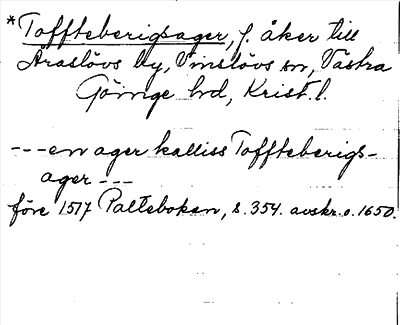 *Toffteberigsager, f. åker till
Araslövs by, Vinslövs sn, Västra
Göinge hd, Krist. l.
---en ager kalliss Toffteberigs-
ager ---
före 1517 Paltebokan, s. 354. avskr. o. 1650.